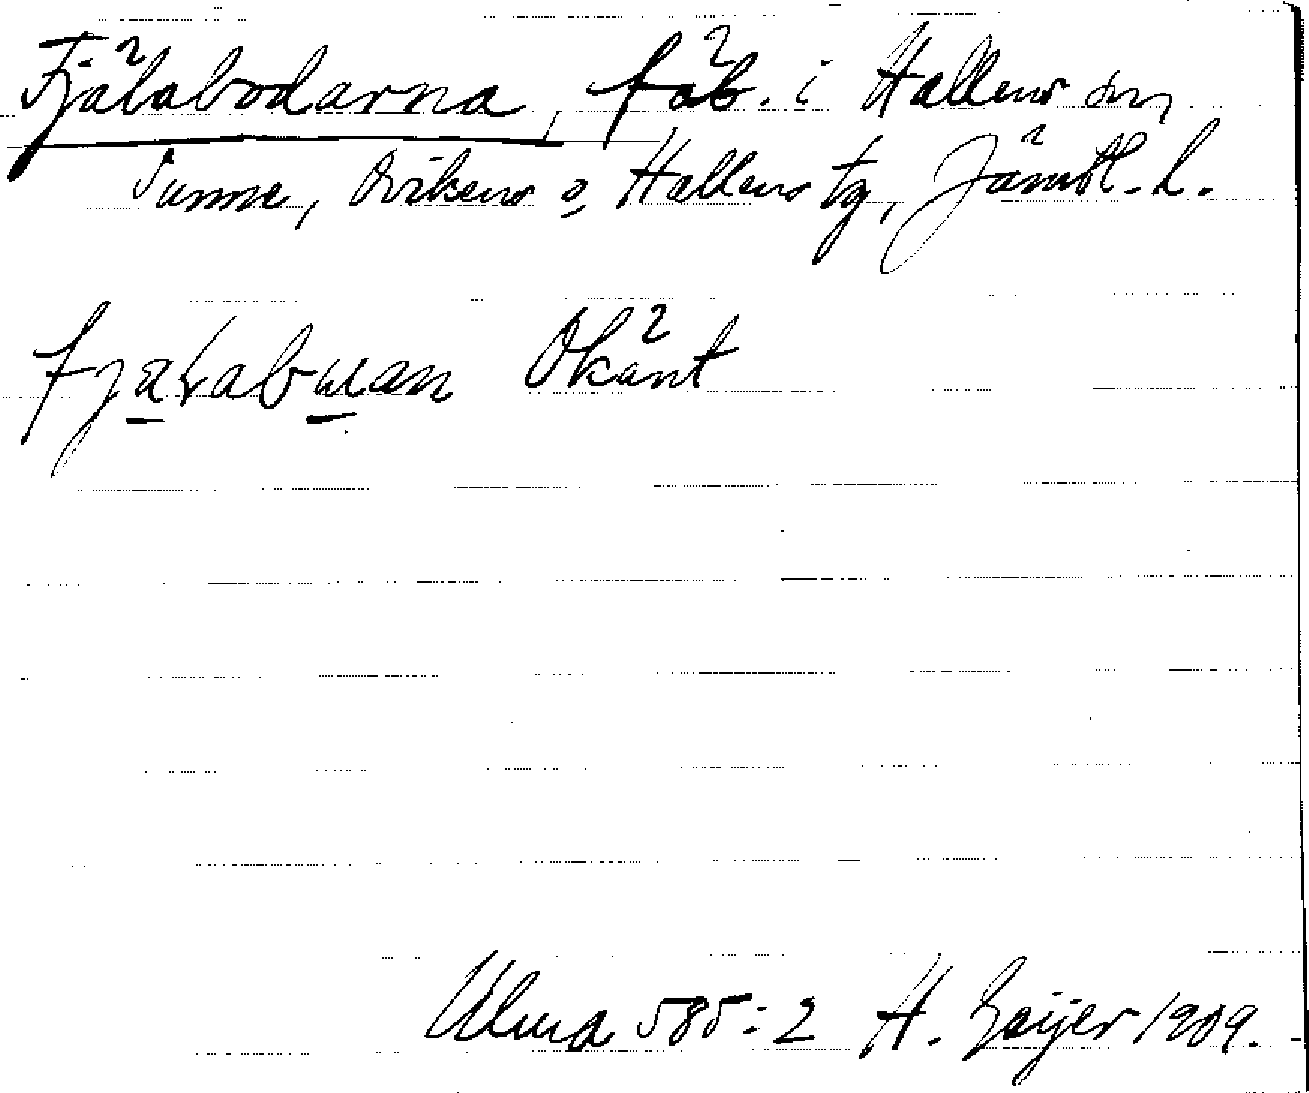 Fjälabodarna, fäb. i Hallens sn,
Sunne, Ovikens o. Hallens tg, Jämtl. l.
fjälabuan Okänt
Ulma 585:2 H. Geijer 1909.